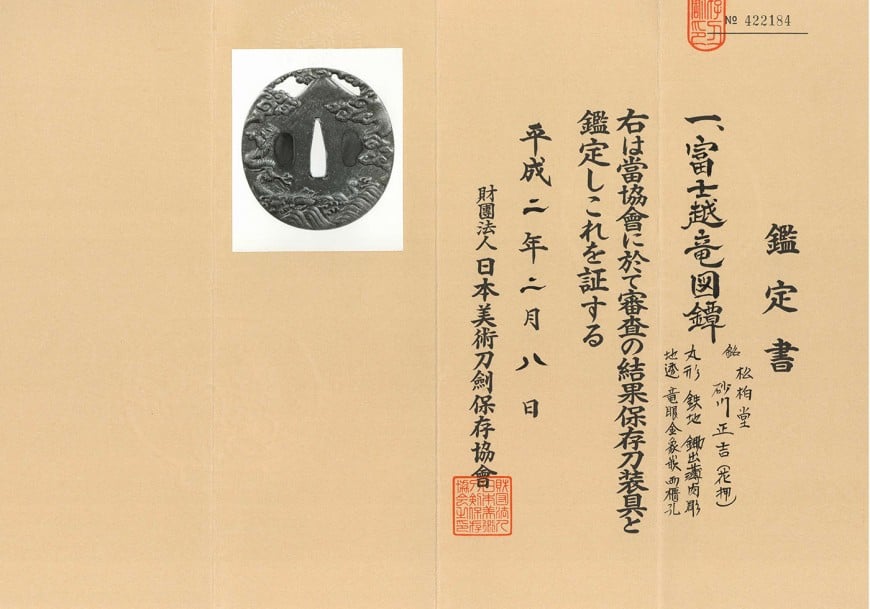 № 422184
鑑定書
一、富士越竜図鐔
銘 松柏堂
砂川正吉(花押)
丸形 鉄地 鋤出薄肉彫
地透 竜眼金象嵌 両櫃孔
右は當協會に於て審査の結果保存刀装具と
鑑定しこれを証する
平成二年二月八日
財團法人日本美術刀劍保存協會